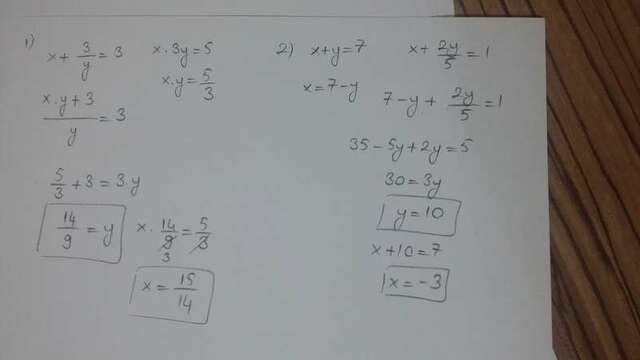 1) x + 3/y = 3    x · 3y = 5
x·y + 3 / y = 3    x·y = 5/3
5/3 + 3 = 3y
14/9 = y    x · 14/9 = 5/3
x = 15/14
2) x+y=7    x + 2y/5 = 1
x = 7-y    7-y + 2y/5 = 1
35 - 5y + 2y = 5
30 = 3y
y = 10
x + 10 = 7
x = -3